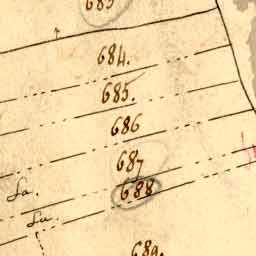 683
684.
685.
686
687
688
La.
Lu.
689.